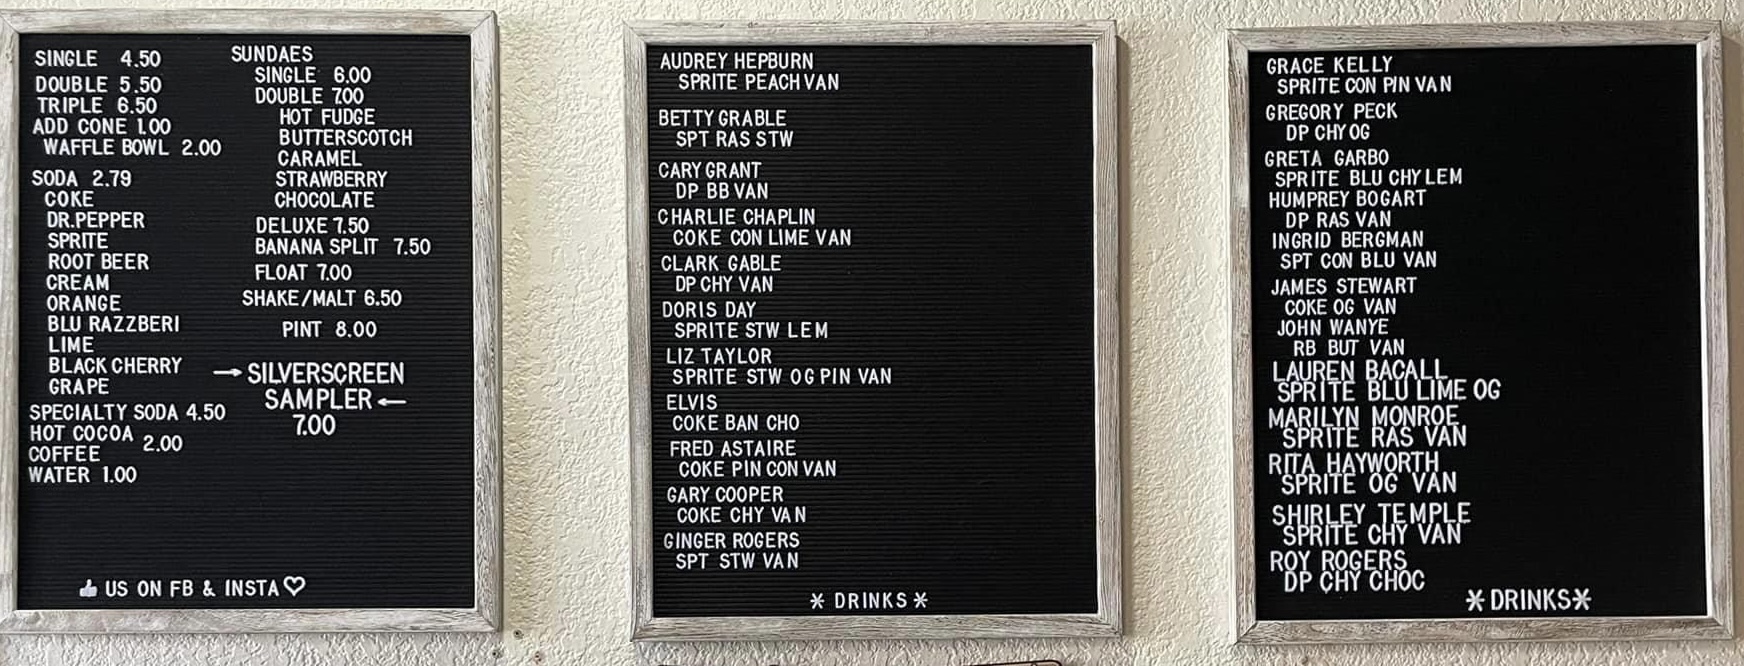 SINGLE 4.50
DOUBLE 5.50
TRIPLE 6.50
ADD CONE 1.00
WAFFLE BOWL 2.00
SODA 2.79
COKE
DR.PEPPER
SPRITE
ROOT BEER
CREAM
ORANGE
BLU RAZZBERI
LIME
BLACK CHERRY
GRAPE
SPECIALTY SODA 4.50
HOT COCOA
COFFEE 2.00
WATER 1.00
SUNDAES
SINGLE 6.00
DOUBLE 7.00
HOT FUDGE
BUTTERSCOTCH
CARAMEL
STRAWBERRY
CHOCOLATE
DELUXE 7.50
BANANA SPLIT 7.50
FLOAT 7.00
SHAKE/MALT 6.50
PINT 8.00
→ SILVERSCREEN
SAMPLER ←
7.00
👍 US ON FB & INSTA ♡
AUDREY HEPBURN
SPRITE PEACH VAN
BETTY GRABLE
SPT RAS STW
CARY GRANT
DP BB VAN
CHARLIE CHAPLIN
COKE CON LIME VAN
CLARK GABLE
DP CHY VAN
DORIS DAY
SPRITE STW LEM
LIZ TAYLOR
SPRITE STW OG PIN VAN
ELVIS
COKE BAN CHO
FRED ASTAIRE
COKE PIN CON VAN
GARY COOPER
COKE CHY VAN
GINGER ROGERS
SPT STW VAN
* DRINKS *
GRACE KELLY
SPRITE CON PIN VAN
GREGORY PECK
DP CHY OG
GRETA GARBO
SPRITE BLU CHY LEM
HUMPREY BOGART
DP RAS VAN
INGRID BERGMAN
SPT CON BLU VAN
JAMES STEWART
COKE OG VAN
JOHN WANYE
RB BUT VAN
LAUREN BACALL
SPRITE BLU LIME OG
MARILYN MONROE
SPRITE RAS VAN
RITA HAYWORTH
SPRITE OG VAN
SHIRLEY TEMPLE
SPRITE CHY VAN
ROY ROGERS
DP CHY CHOC
*DRINKS*